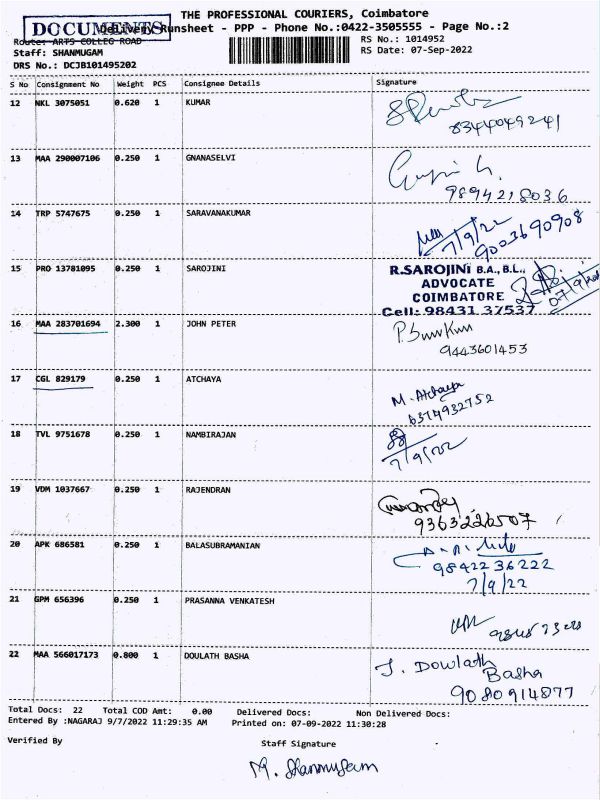 THE PROFESSIONAL COURIERS, Coimbatore
DOCUMENTS
Delivery Runsheet - PPP - Phone No.:0422-3505555 - Page No.:2
Route: ARTS COLLEG ROAD
RS No.: 1014952
Staff: SHANMUGAM
RS Date: 07-Sep-2022
DRS No.: DCJB101495202
S No Consignment No Weight PCS Consignee Details Signature
12 NKL 3075051 0.620 1 KUMAR
8344049241
13 MAA 290007106 0.250 1 GNANASELVI
9894218036
14 TRP 5747675 0.250 1 SARAVANAKUMAR
7/9/22
9003690908
15 PRO 13781095 0.250 1 SAROJINI
R.SAROJINI B.A., B.L.,
ADVOCATE
COIMBATORE
Cell: 98431 37537
16 MAA 283701694 2.300 1 JOHN PETER
9443601453
17 CGL 829179 0.250 1 ATCHAYA
M. Atchaya
6374932752
18 TVL 9751678 0.250 1 NAMBIRAJAN
7/9/22
19 VDM 1037667 0.250 1 RAJENDRAN
9363226507
20 APK 686581 0.250 1 BALASUBRAMANIAN
9842236222
7/9/22
21 GPM 656396 0.250 1 PRASANNA VENKATESH
22 MAA 566017173 0.800 1 DOULATH BASHA
J. Dowlath
Basha
9080914877
Total Docs: 22 Total COD Amt: 0.00 Delivered Docs: Non Delivered Docs:
Entered By :NAGARAJ 9/7/2022 11:29:35 AM Printed on: 07-09-2022 11:30:28
Verified By
Staff Signature
M. Shanmugam